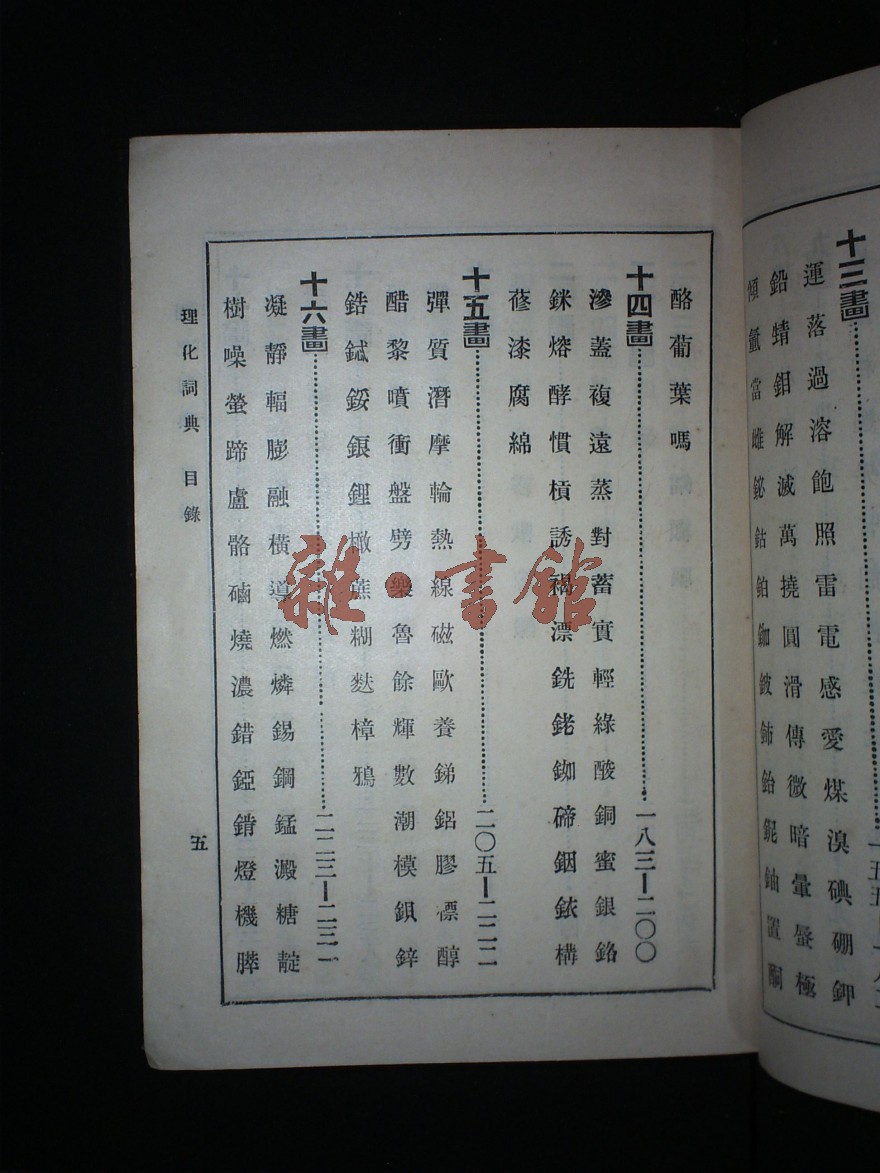 十三畫
運落過溶飽照雷電感愛煤溴碘硼鉀
鉛蜻鉬解滅萬撓圓滑傳微暗暈蜃極
傾
當雌鉍鈷鉑鉫鈹鈰鉛鈮鈾置酮
酪葡葉嗎
十四畫 一八三—二〇〇
滲蓋複遠蒸對蓄實輕綠酸銅蜜銀鉻
銤熔酵慣槓誘褐漂銑銠銣碲銦銥構
蓚漆腐綿
十五畫 二〇五—二二二
彈質潛摩輪熱線磁歐養銻鋁膠標醇
醋黎噴衝盤劈樂魯餘輝數潮模鋇鋅
鋯鋱鋖鋃鋰橄蔗糊麩樟鴉
十六畫 二二三—二三一
凝靜輻膨融橫導燃燐錫鋼錳澱糖靛
樹噪螢蹄盧骼硇燒濃錯錏錆燈機膵
理化詞典 目錄
五
雜·書館